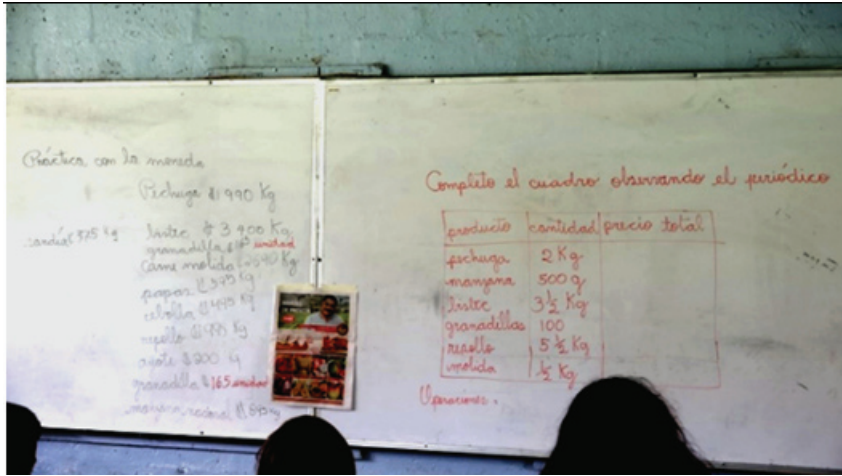 Práctica con la moneda
Pechuga ₡1 990 Kg
sandía ₡375 Kg
bistec ₡ 3 900 Kg
granadilla ₡165 unidad
Carne molida ₡2590 Kg
papas ₡595 Kg
cebolla ₡495 Kg
repollo ₡495 Kg
ayote ₡200
granadilla ₡165 unidad
manzana nacional ₡ Kg
Completo el cuadro observando el periódico
producto cantidad precio total
pechuga 2 Kg
manzana 500 g
bistec 3 ½ Kg
granadillas 100
repollo 5 ½ Kg
molida ½ Kg
Operaciones.